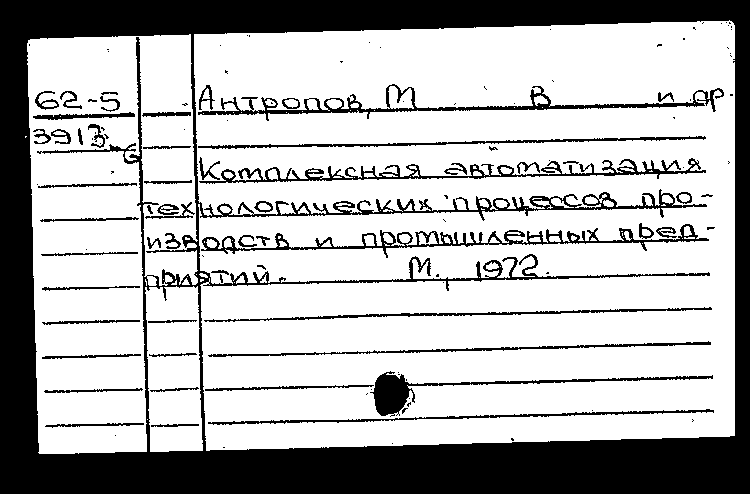 62-5 Антропов, М В и др.
3913-6
Комплексная автоматизация
технологических процессов про-
изводств и промышленных пред-
приятий. М., 1972.